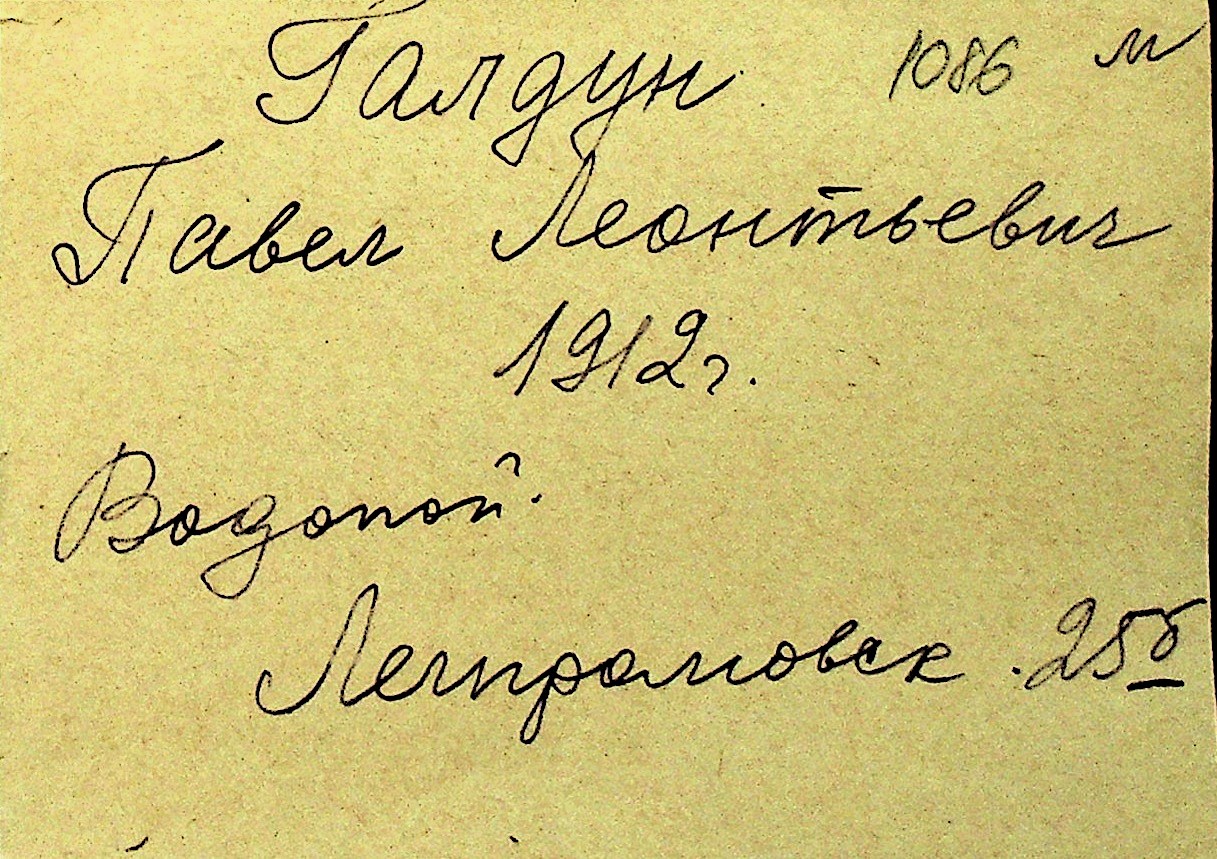 Галдун 1086 м
Павел Леонтьевич
1912 г.
Водопой.
Легпромовск. 25б